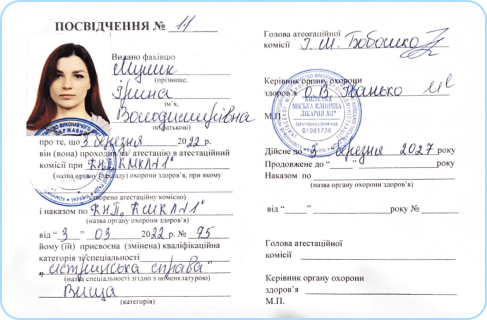 ПОСВІДЧЕННЯ № 11
Видано фахівцю
(прізвище,
Ірина
ім’я,
Володимирівна
по батькові)
про те, що 3 березня 2022 р.
він (вона) проходив(ла) атестацію в атестаційній
комісії при КНП „КМКЛ №1"
(назва органу (закладу) охорони здоров’я, при якому
створено атестаційну комісію)
і наказом по КНП „КМКЛ №1"
(назва органу охорони здоров’я)
від “ 3 ” 03 2022 р. № 95
йому (їй) присвоєна (змінена) кваліфікаційна
категорія зі спеціальності
„сестринська справа"
(назва спеціальності згідно з номенклатурою)
Вища
(категорія)
Голова атестаційної
комісії І. М. Бобошко
Керівник органу охорони
здоров’я О. В. Іванько
М.П.
КИЇВСЬКА
МІСЬКА КЛІНІЧНА
ЛІКАРНЯ №1
Дійсне до “ 3 ” березня 2027 року
Продовжене до “ ” року
Наказ по
(назва органу охорони здоров’я)
від “ ” року №
Голова атестаційної
комісії
Керівник органу охорони
здоров’я
М.П.